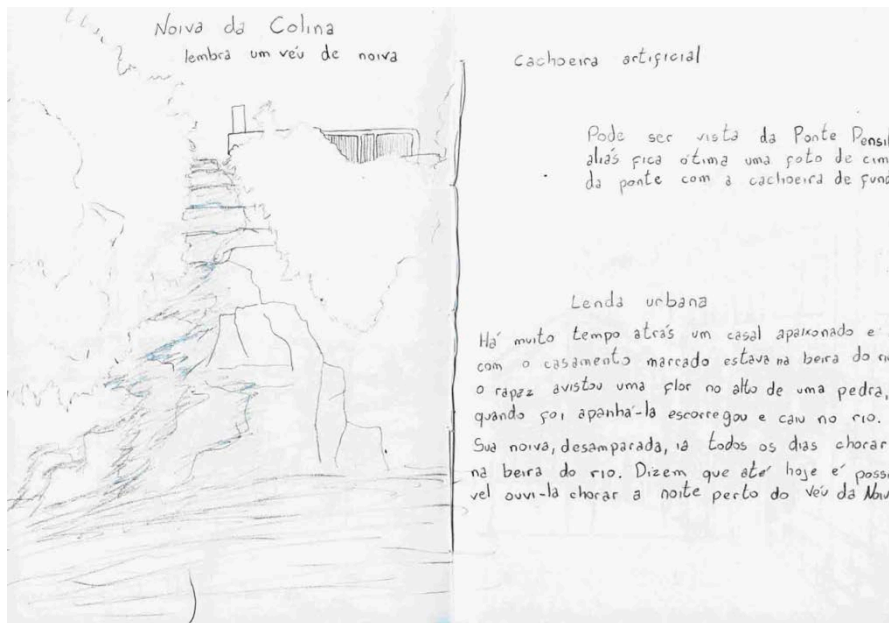 Noiva da Colina
lembra um véu de noiva
Cachoeira artificial
Pode ser vista da Ponte Pensil
aliás fica ótima uma foto de cim
da ponte com a cachoeira de fund
Lenda urbana
Há muito tempo atrás um casal apaixonado e
com o casamento marcado estava na beira do rio
o rapaz avistou uma flor no alto de uma pedra,
quando foi apanhá-la escorregou e caiu no rio.
Sua noiva, desamparada, ia todos os dias chorar
na beira do rio. Dizem que até hoje é possi
vel ouvi-la chorar a noite perto do Véu da Noiv